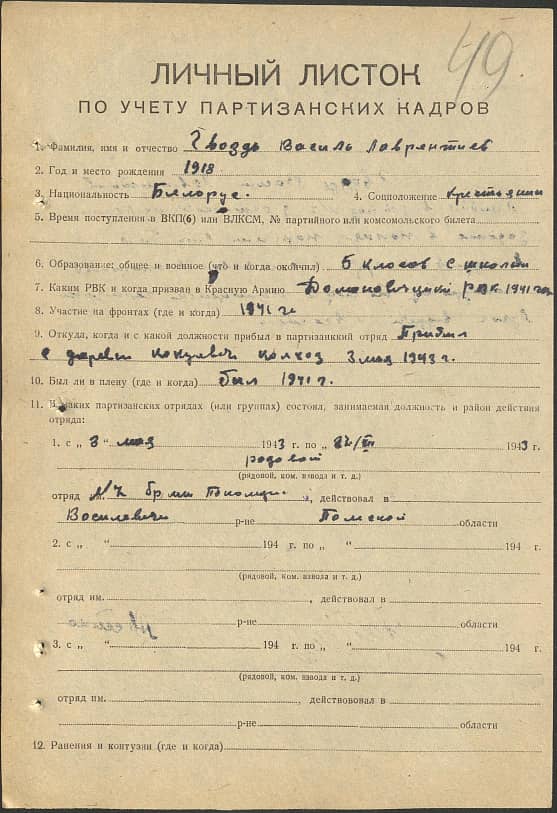 49
ЛИЧНЫЙ ЛИСТОК
ПО УЧЕТУ ПАРТИЗАНСКИХ КАДРОВ
1. Фамилия, имя и отчество Гвоздь Василь Лаврентиев
2. Год и место рождения 1918
3. Национальность Беларус. 4. Соцположение крестьянин
5. Время поступления в ВКП(б) или ВЛКСМ, № партийного или комсомольского билета
6. Образование: общее и военное (что и когда окончил) 5 класов
7. Каким РВК и когда призван в Красную Армию Домановицкий РВК 1941 год
8. Участие на фронтах (где и когда) 1941 г.
9. Откуда, когда и с какой должности прибыл в партизанкий отряд Прибыл
с деревни колхоз 3 мая 1943 г.
10. Был ли в плену (где и когда) был 1941 г.
11. В каких партизанских отрядах (или группах) состоял, занимаемая должность и район действия
отряда:
1. с „ 3 “ мая 1943 г. по „ 1943 г.
родовой
(рядовой, ком. взвода и т. д.)
отряд , действовал в
Василевичи р-не области
2. с „ “ 194 г. по „ “ 194 г.
(рядовой, ком. взвода и т. д.)
отряд им. , действовал в
р-не области
3. с „ “ 194 г. по „ “ 194 г.
(рядовой, ком. взвода и т. д.)
отряд им. , действововал в
р-не области
12. Ранения и контузии (где и когда)